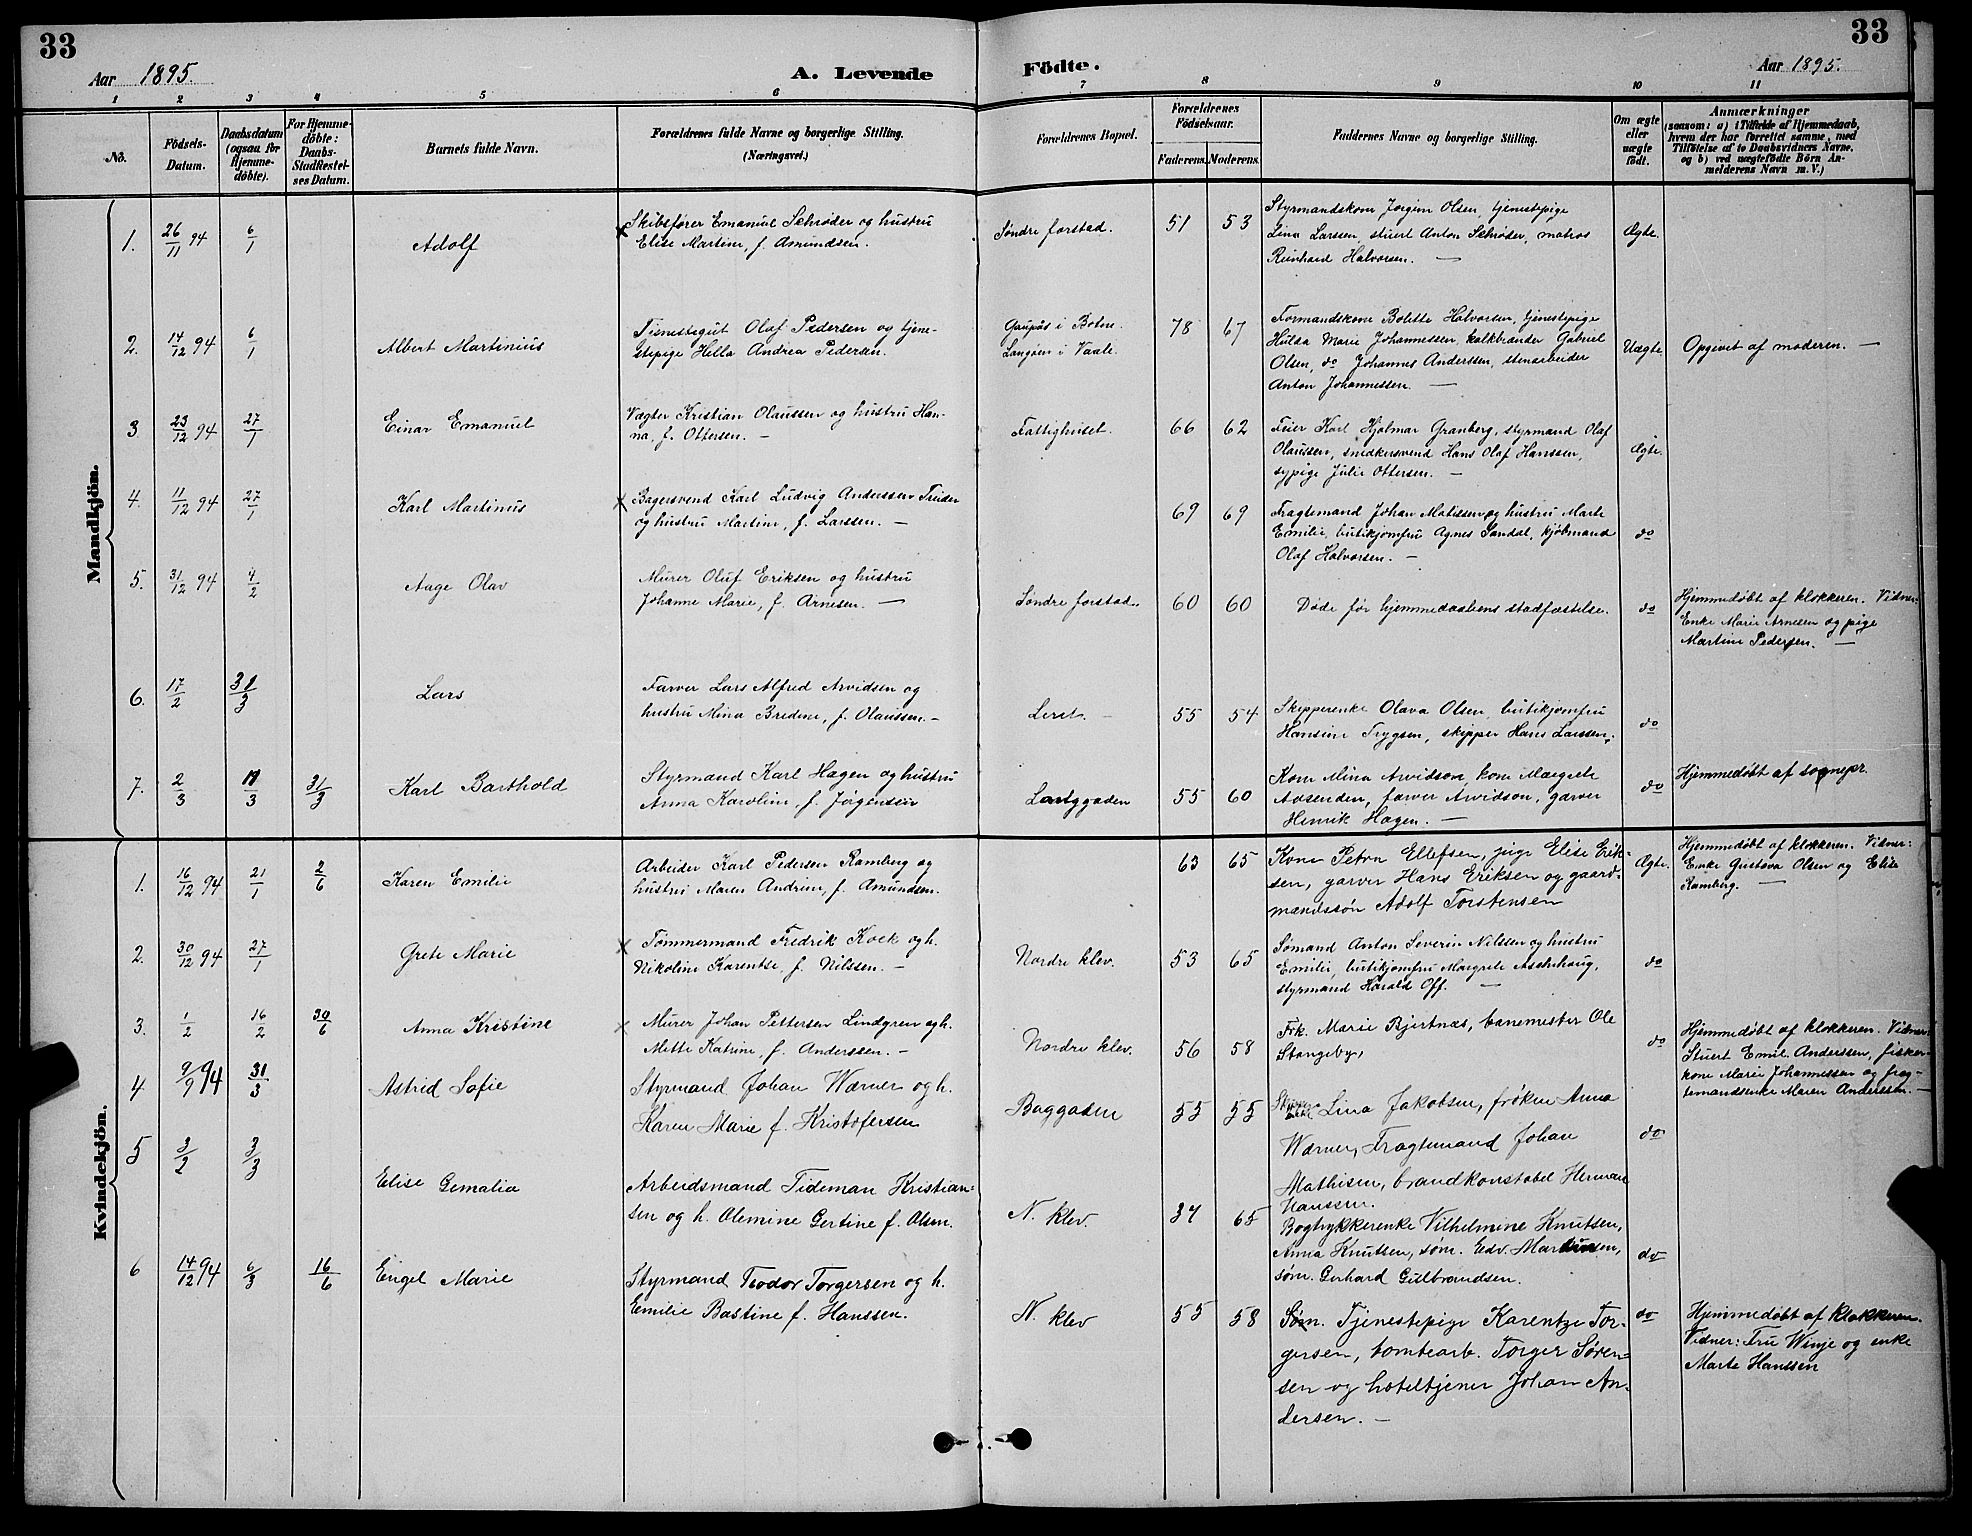 33
33
Aar 1895.
A. Levende
Födte.
Aar 1895.
1 2 3 4 5 6 7 8 9 10 11
No.
Födsels-Datum.
Daabsdatum (ogsaa for Hjemme-döbte).
For Hjemme-döbte: Daabs-Stadfæstel-ses Datum.
Barnets fulde Navn.
Forældrenes fulde Navne og borgerlige Stilling.
(Næringsvei.)
Forældrenes Bopæl.
Forældrenes Födselsaar.
Faderens. Moderens.
Faddernes Navne og borgerlige Stilling.
Om ægte eller uægte födt.
Anmærkninger
(saasom: a) i Tilfælde af Hjemmedaab,
hvem der har forrettet samme, med
Tilföielse af to Daabsvidners Navne,
og b) ved uægtefödte Börn An-
melderens Navn m. V.)
Mandkjön.
1. 26/11 94 6/1 Adolf
× Skibsfører Emanuel Schrøder og hustru
Elise Martine, f. Amundsen.
Søndre forstad. 51 53
Styrmandskone Jørgine Olsen, tjenestepige
Lina Larssen, stuert Anton Schrøder, matros
Reinhard Halvorsen. —
Ægte.
2. 14/12 94 6/1 Albert Martinius
Tjenestegut Olaf Pedersen og tjene-
stepige Hella Andrea Pedersen.
Gaupås i Botne.
Langøen i Vaale.
78 67
Formandskone Bolette Halvorsen, tjenestepige
Hulda Marie Johannessen, kalkbrænder Gabriel
Olsen, do Johannes Anderssen, stenarbeider
Anton Johannessen. —
Uægte
Opgivet af moderen. —
3. 23/12 94 27/1 Einar Emanuel
Vægter Kristian Olaussen og hustru Han-
na, f. Ottersen. —
Fattighuset. 66 62
Feier Karl Hjalmar Granberg, styrmand Olaf
Olaussen, snedkersvend Hans Olaf Hanssen,
sypige Julie Ottersen. —
Ægte.
4. 11/12 94 27/1 Karl Martinus
× Bagersvend Karl Ludvig Anderssen Treider
og hustru Martine, f. Larssen. —
69 69
Fragtemand Johan Matissen og hustru Marte
Emilie, butikjomfru Agnes Sandal, kjøbmand
Olaf Halvorsen. —
do
5. 31/12 94 4/2 Aage Olav
Murer Oluf Eriksen og hustru
Johanne Marie, f. Arnesen. —
Søndre forstad. 60 60
Døde før hjemmedaabens stadfæstelse.
do
Hjemmedøbt af klokkeren. Vidner:
Enke Marie Arnesen og pige
Martine Pedersen. —
6. 17/2 31/3 Lars
Farver Lars Alfred Arvidsen og
hustru Mina Bredine, f. Olaussen. —
Leret. — 55 54
Skipperenke Olava Olsen, butikjomfru
Hansine Trygsen, skipper Hans Larssen.
do
7. 2/3 /3 31/3 Karl Barthold
Styrmand Karl Hagen og hustru
Anna Karoline, f. Jørgensen
Langgaden 55 60
Kone Mina Arvidson, kone Margrete
Aasenden, farver Arvidson, garver
Henrik Hagen. —
do
Hjemmedøbt af sognepr.
Kvindekjön.
1. 16/12 94 21/1 2/6 Karen Emilie
Arbeider Karl Pedersen Ramberg og
hustru Maren Andrine, f. Amundsen.
63 65
Kone Petra Ellefsen, pige Elise Erik-
sen, garver Hans Eriksen og gaard-
mandssøn Adolf Torstensen
Ægte.
Hjemmedøbt af klokkeren. Vidner:
Enke Gustava Olsen og Elise
Ramberg. —
2. 30/12 94 27/1 Grete Marie
× Tømmermand Fredrik Kock og h.
Nikoline Karentse, f. Nilssen. —
Nordre klev. 53 65
Sømand Anton Severin Nilssen og hustru
Emilie, butikjomfru Margrete Aschehoug,
styrmand Harald Off. —
do
3. 1/2 16/2 30/6 Anna Kristine
× Murer Johan Pettersen Lindgren og h.
Mette Katrine, f. Anderssen. —
Nordre klev. 56 58
Frk. Marie Bjertnæs, banemester Ole
Stangeby,
do
Hjemmedøbt af klokkeren. Vidner:
Stuert Emil Anderssen, fisker-
kone Marie Johannessen og frag-
temandsenke Maren Anderssen. —
4. 9/9 94 31/3 Astrid Sofie
Styrmand Johan Wærner og h.
Karen Marie f. Kristofersen
Baggaden 55 55
Lina Jakobsen, frøken Anna
Wærner, Fragtemand Johan
Mathisen, brandkonstabel Herman
Hanssen.
do
5 3/2 3/3 Elise Gemalia
Arbeidsmand Tideman Kristian-
sen og h. Olemine Gertine f. Olsen.
N. klev. 34 65
Bogtrykkerenke Vilhelmine Knutsen,
Anna Knutsen, søm. Edv. Martinsen,
søm. Gerhard Gulbrandsen.
do
6 14/12 94 6/3 16/6 Engel Marie
Styrmand Teodor Torgersen og h.
Emilie Bastine f. Hanssen.
N. klev 55 58
Søm. Tjenestepige Karentze Tor-
gersen, tomtearb. Torger Søren-
sen og hoteltjener Johan An-
dersen. —
do
Hjemmedøbt af klokkeren.
Vidner: Fru Winje og enke
Marte Hanssen